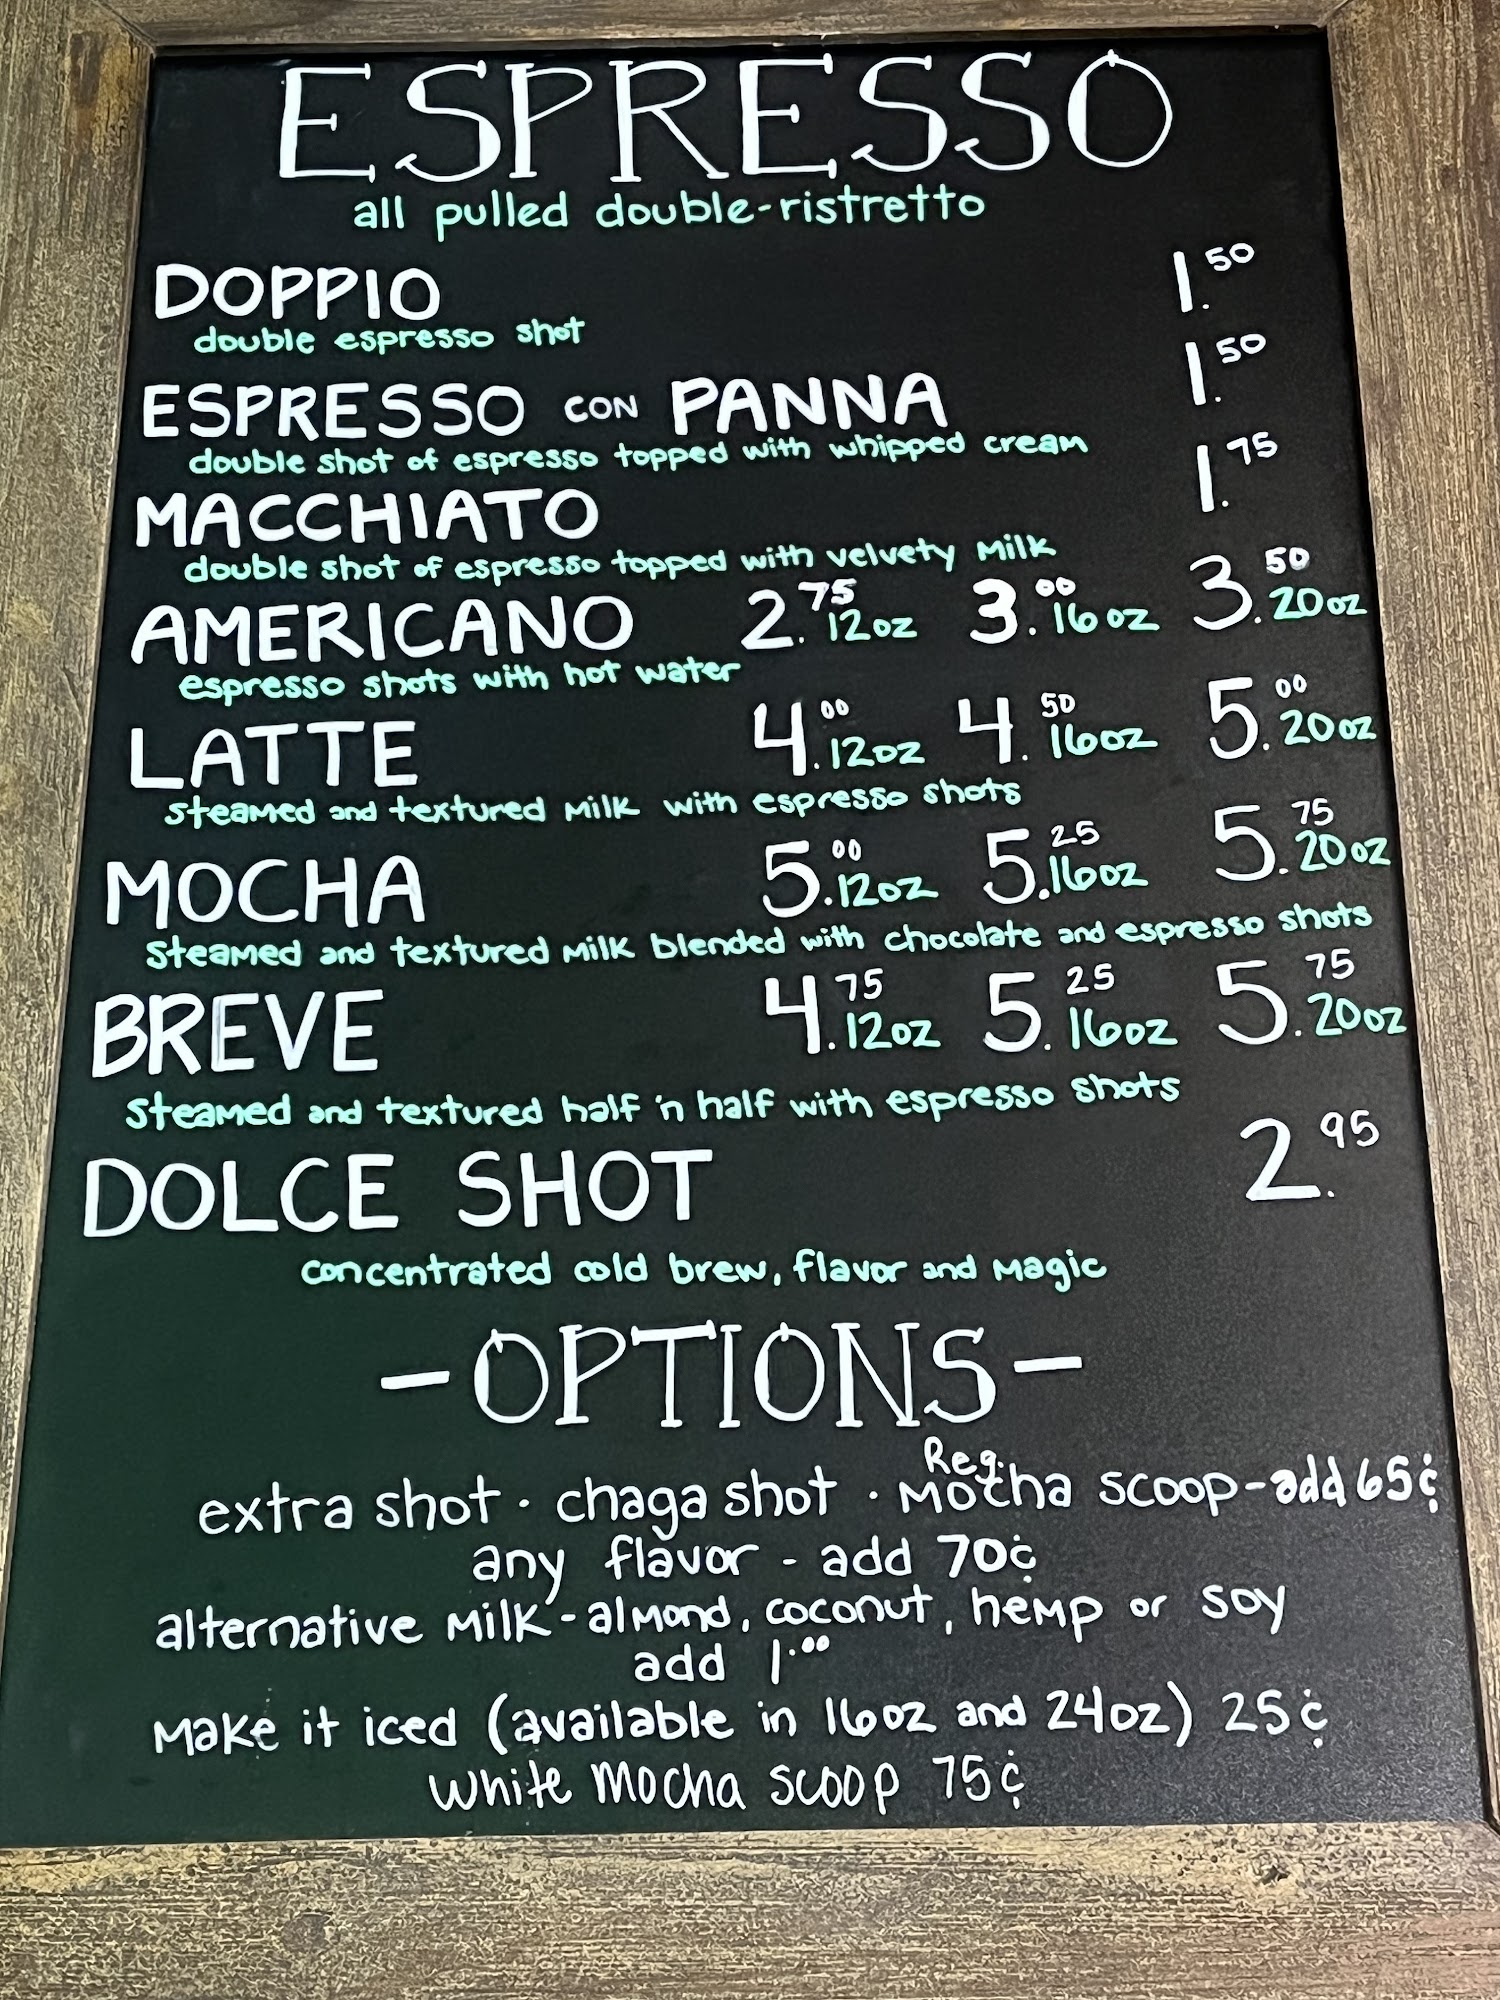 ESPRESSO
all pulled double-ristretto
DOPPIO 1.50
double espresso shot
ESPRESSO CON PANNA 1.50
double shot of espresso topped with whipped cream
MACCHIATO 1.75
double shot of espresso topped with velvety milk
AMERICANO 2.75 12oz 3.00 16oz 3.50 20oz
espresso shots with hot water
LATTE 4.00 12oz 4.50 16oz 5.00 20oz
steamed and textured milk with espresso shots
MOCHA 5.00 12oz 5.25 16oz 5.75 20oz
steamed and textured milk blended with chocolate and espresso shots
BREVE 4.75 12oz 5.25 16oz 5.75 20oz
steamed and textured half 'n half with espresso shots
DOLCE SHOT 2.95
concentrated cold brew, flavor and magic
-OPTIONS-
extra shot · chaga shot · Reg. Mocha scoop - add 65¢
any flavor - add 70¢
alternative milk - almond, coconut, hemp or soy
add 1.00
make it iced (available in 16oz and 24oz) 25¢
white mocha scoop 75¢